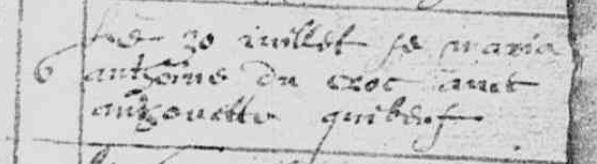 Le 20 iuillet se maria
6 anthoine du croc avec
anthouette quibeuf